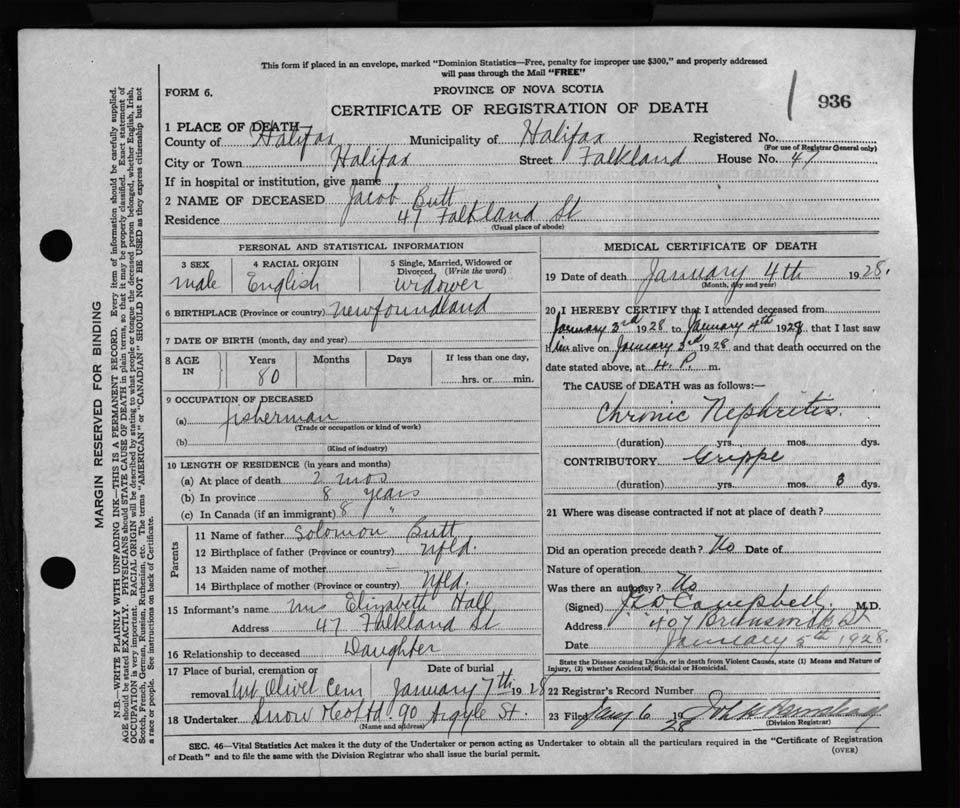 This form if placed in an envelope, marked "Dominion Statistics—Free, penalty for improper use $300," and properly addressed
will pass through the Mail "FREE"
FORM 6.
PROVINCE OF NOVA SCOTIA
CERTIFICATE OF REGISTRATION OF DEATH
936
1 PLACE OF DEATH
County of Halifax Municipality of Halifax Registered No.
(For use of Registrar General only)
City or Town Halifax Street Falkland House No. 47
If in hospital or institution, give name
2 NAME OF DECEASED Jacob Butt
Residence 47 Falkland St
(Usual place of abode)
PERSONAL AND STATISTICAL INFORMATION
3 SEX
male
4 RACIAL ORIGIN
English
5 Single, Married, Widowed or
Divorced, (Write the word)
widower
6 BIRTHPLACE (Province or country) Newfoundland
7 DATE OF BIRTH (month, day and year)
8 AGE IN
Years Months Days
80
If less than one day,
hrs. or min.
9 OCCUPATION OF DECEASED
(a) fisherman
(Trade or occupation or kind of work)
(b)
(Kind of industry)
10 LENGTH OF RESIDENCE (in years and months)
(a) At place of death 2 mos
(b) In province 8 years
(c) In Canada (if an immigrant) 8 "
Parents
11 Name of father Solomon Butt
12 Birthplace of father (Province or country) Nfld.
13 Maiden name of mother —
14 Birthplace of mother (Province or country) Nfld.
15 Informant's name Mrs Elizabeth Hall
Address 47 Falkland St
16 Relationship to deceased Daughter
17 Place of burial, cremation or Date of burial
removal Mt Olivet Cem January 7th 1928
18 Undertaker Snow 90 Argyle St.
(Name and address)
MEDICAL CERTIFICATE OF DEATH
19 Date of death January 4th 1928.
(Month, day and year)
20 I HEREBY CERTIFY that I attended deceased from
January 3rd 1928 to January 4th 1928, that I last saw
him alive on January 3rd 1928 and that death occurred on the
date stated above, at 4. P. m.
The CAUSE of DEATH was as follows:—
Chronic Nephritis.
(duration) yrs. mos. dys.
CONTRIBUTORY Grippe
(duration) yrs. mos. 3 dys.
21 Where was disease contracted if not at place of death?
Did an operation precede death? No Date of
Nature of operation
Was there an autopsy? No
(Signed) Campbell M.D.
Address 407 Brunswick St
Date January 5th 1928.
State the Disease causing Death, or in death from Violent Causes, state (1) Means and Nature of
Injury, (2) whether Accidental, Suicidal or Homicidal.
22 Registrar's Record Number
23 Filed Jany 6 1928 John
(Division Registrar)
SEC. 46—Vital Statistics Act makes it the duty of the Undertaker or person acting as Undertaker to obtain all the particulars required in the "Certificate of Registration
of Death" and to file the same with the Division Registrar who shall issue the burial permit.
(OVER)
MARGIN RESERVED FOR BINDING
N.B.—WRITE PLAINLY WITH UNFADING INK—THIS IS A PERMANENT RECORD. Every item of information should be carefully supplied.
AGE should be stated EXACTLY. PHYSICIANS should STATE CAUSE OF DEATH in plain terms, so that it may be properly classified. Exact statement of
OCCUPATION is very important. RACIAL ORIGIN will be described by stating to what people or tongue the deceased person belonged, whether English, Irish,
Scotch, French, German, Russian, Ruthenian, etc. The terms "AMERICAN" or "CANADIAN" SHOULD NOT BE USED as they express citizenship but not
a race or people. See instructions on back of Certificate.